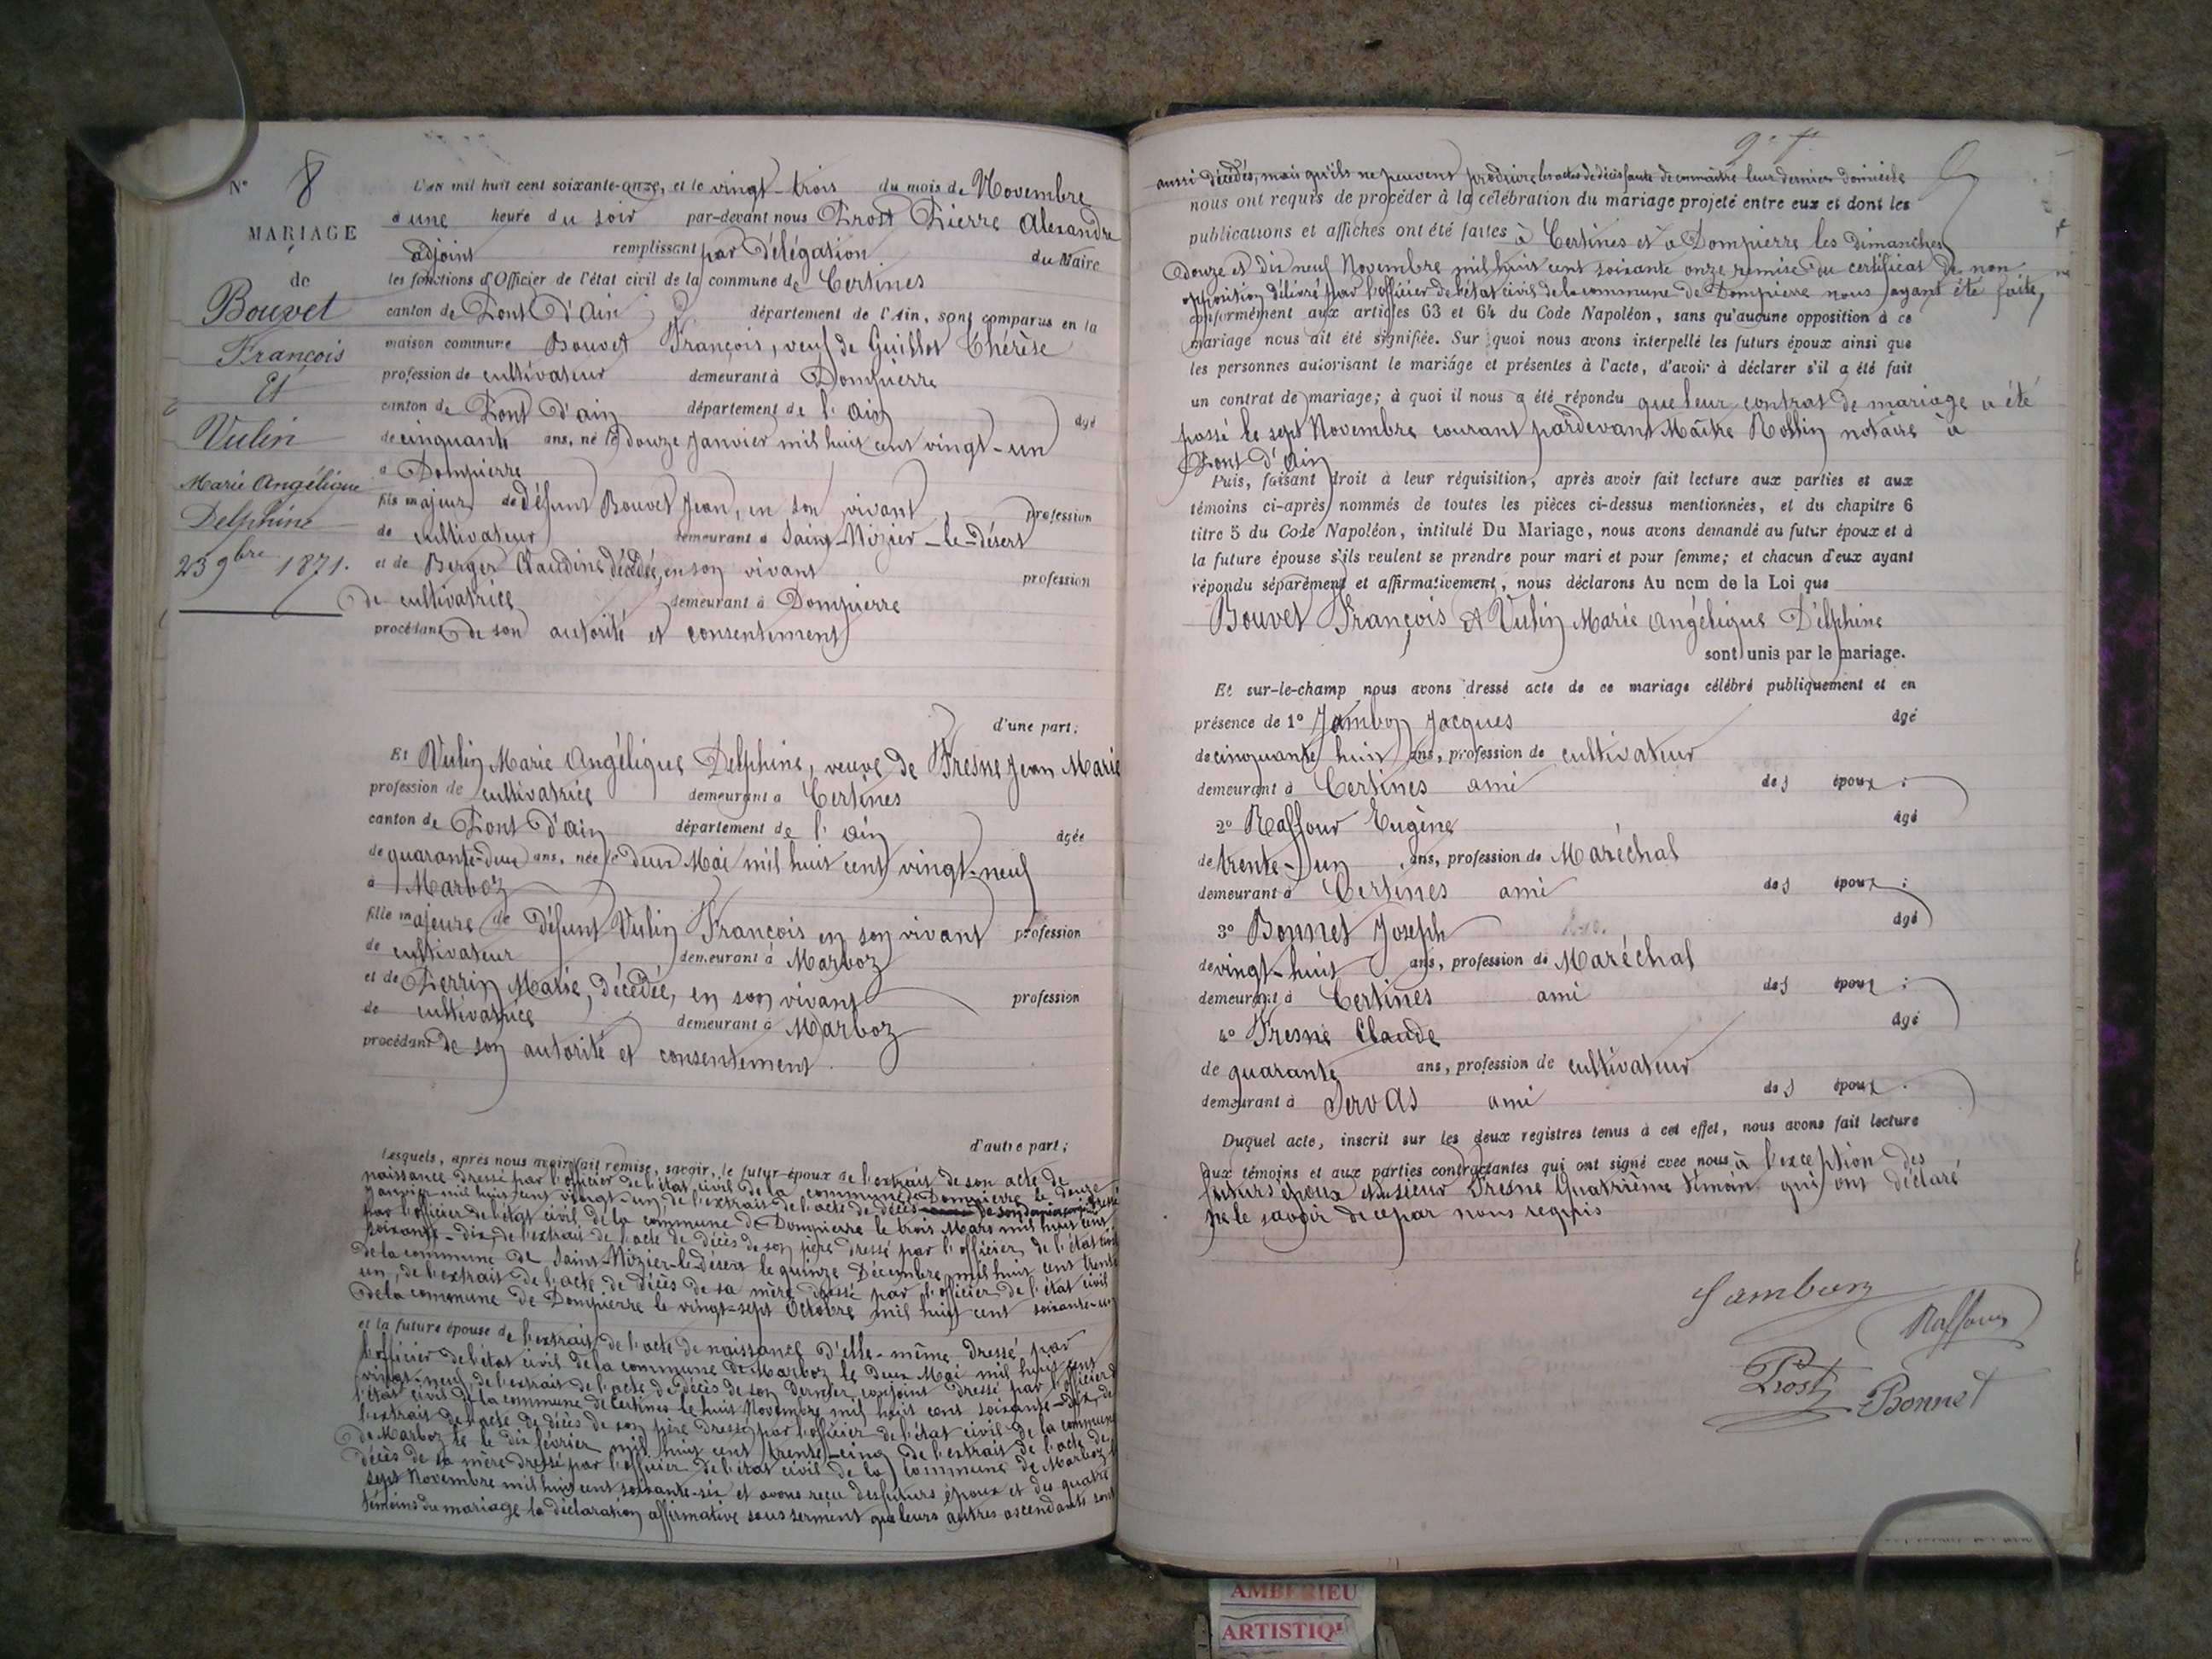 N° 8
MARIAGE
de
Bouvet
François
Et
Vulin
Marie Angélique
Delphine
23 9bre 1871.
L'an mil huit cent soixante-onze, et le vingt-trois du mois de Novembre
à une heure du soir par-devant nous Prost Pierre Alexandre
adjoint remplissant par délégation du Maire
les fonctions d'Officier de l'état civil de la commune de Certines
canton de Pont d'Ain département de l'Ain, sont comparus en la
maison commune Bouvet François, veuf de Guillot Thérèse
profession de cultivateur demeurant à Dompierre
canton de Pont d'ain département de l'ain âgé
de cinquante ans, né le douze Janvier mil huit cent vingt-un
à Dompierre
fils majeur de défunt Bouvet Jean, en son vivant, profession
de cultivateur demeurant à Saint-Nizier-le-désert
et de Berger Claudine décédée, en son vivant profession
de cultivatrice demeurant à Dompierre
procédant de son autorité et consentement
d'une part;
Et Vulin Marie Angélique Delphine, veuve de Fresne Jean Marie
profession de cultivatrice demeurant à Certines
canton de Pont d'ain département de l'ain âgée
de quarante-deux ans, née le deux Mai mil huit cent vingt-neuf
à Marboz
fille majeure de défunt Vulin François en son vivant profession
de cultivateur demeurant à Marboz
et de Perrin Marie, décédée, en son vivant profession
de cultivatrice demeurant à Marboz
procédant de son autorité et consentement
d'autre part;
Lesquels, après nous avoir fait remise, savoir, le futur époux de l'extrait de son acte de
naissance dressé par l'officier de l'état civil de la commune de Dompierre le douze
Janvier mil huit cent vingt-un, de l'extrait de l'acte de décès de son dernier conjoint dressé
par l'officier de l'état civil de la commune de Dompierre le trois Mars mil huit cent
soixante-dix, de l'extrait de l'acte de décès de son père dressé par l'officier de l'état civil
de la commune de Saint-Nizier-le-désert le quinze Décembre mil huit cent trente
un, de l'extrait de l'acte de décès de sa mère dressé par l'officier de l'état civil
de la commune de Dompierre le vingt-sept Octobre mil huit cent soixante-un
et la future épouse de l'extrait de l'acte de naissance d'elle-même dressé par
l'officier de l'état civil de la commune de Marboz le deux Mai mil huit cent
vingt-neuf, de l'extrait de l'acte de décès de son dernier conjoint dressé par l'officier de
l'état civil de la commune de Certines le huit Novembre mil huit cent soixante-dix, de
l'extrait de l'acte de décès de son père dressé par l'officier de l'état civil de la commune
de Marboz le dix février mil huit cent trente-cinq de l'extrait de l'acte de
décès de sa mère dressé par l'officier de l'état civil de la commune de Marboz
sept Novembre mil huit cent soixante-six et avons reçu des futurs époux et des quatre
témoins du mariage la déclaration affirmative sous serment que leurs autres ascendants sont
aussi décédés, mais qu'ils ne peuvent produire les actes de décès faute de connaître leur dernier domicile
nous ont requis de procéder à la célébration du mariage projeté entre eux et dont les
publications et affiches ont été faites à Certines et à Dompierre les dimanches
douze et dix neuf Novembre mil huit cent soixante onze remise du certificat de non
opposition délivré par l'officier de l'état civil de la commune de Dompierre nous ayant été faite,
conformément aux articles 63 et 64 du Code Napoléon, sans qu'aucune opposition à ce
mariage nous ait été signifiée. Sur quoi nous avons interpellé les futurs époux ainsi que
les personnes autorisant le mariage et présentes à l'acte, d'avoir à déclarer s'il a été fait
un contrat de mariage; à quoi il nous a été répondu que leur contrat de mariage a été
passé le sept Novembre courant pardevant Maître Rollin notaire à
Pont d'Ain
Puis, faisant droit à leur réquisition, après avoir fait lecture aux parties et aux
témoins ci-après nommés de toutes les pièces ci-dessus mentionnées, et du chapitre 6
titre 5 du Code Napoléon, intitulé Du Mariage, nous avons demandé au futur époux et à
la future épouse s'ils veulent se prendre pour mari et pour femme; et chacun d'eux ayant
répondu séparément et affirmativement, nous déclarons Au nom de la Loi que
Bouvet François et Vulin Marie Angélique Délphine
sont unis par le mariage.
Et sur-le-champ nous avons dressé acte de ce mariage célébré publiquement et en
présence de 1° Jambon Jacques âgé
de cinquante huit ans, profession de cultivateur
demeurant à Certines ami des époux;
2° Raffour Eugène âgé
de trente-un ans, profession de Maréchal
demeurant à Certines ami des époux;
3° Bonnet Joseph âgé
de vingt-huit ans, profession de Maréchal
demeurant à Certines ami des époux;
4° Fresne Claude âgé
de quarante ans, profession de cultivateur
demeurant à Servas ami des époux.
Duquel acte, inscrit sur les deux registres tenus à cet effet, nous avons fait lecture
aux témoins et aux parties contractantes qui ont signé avec nous à l'exception des
futurs époux et du sieur Fresne quatrième témoin qui ont déclaré
ne le savoir de ce par nous requis
Jambon
Raffour
Prost
Bonnet
AMBERIEU
ARTISTIQ